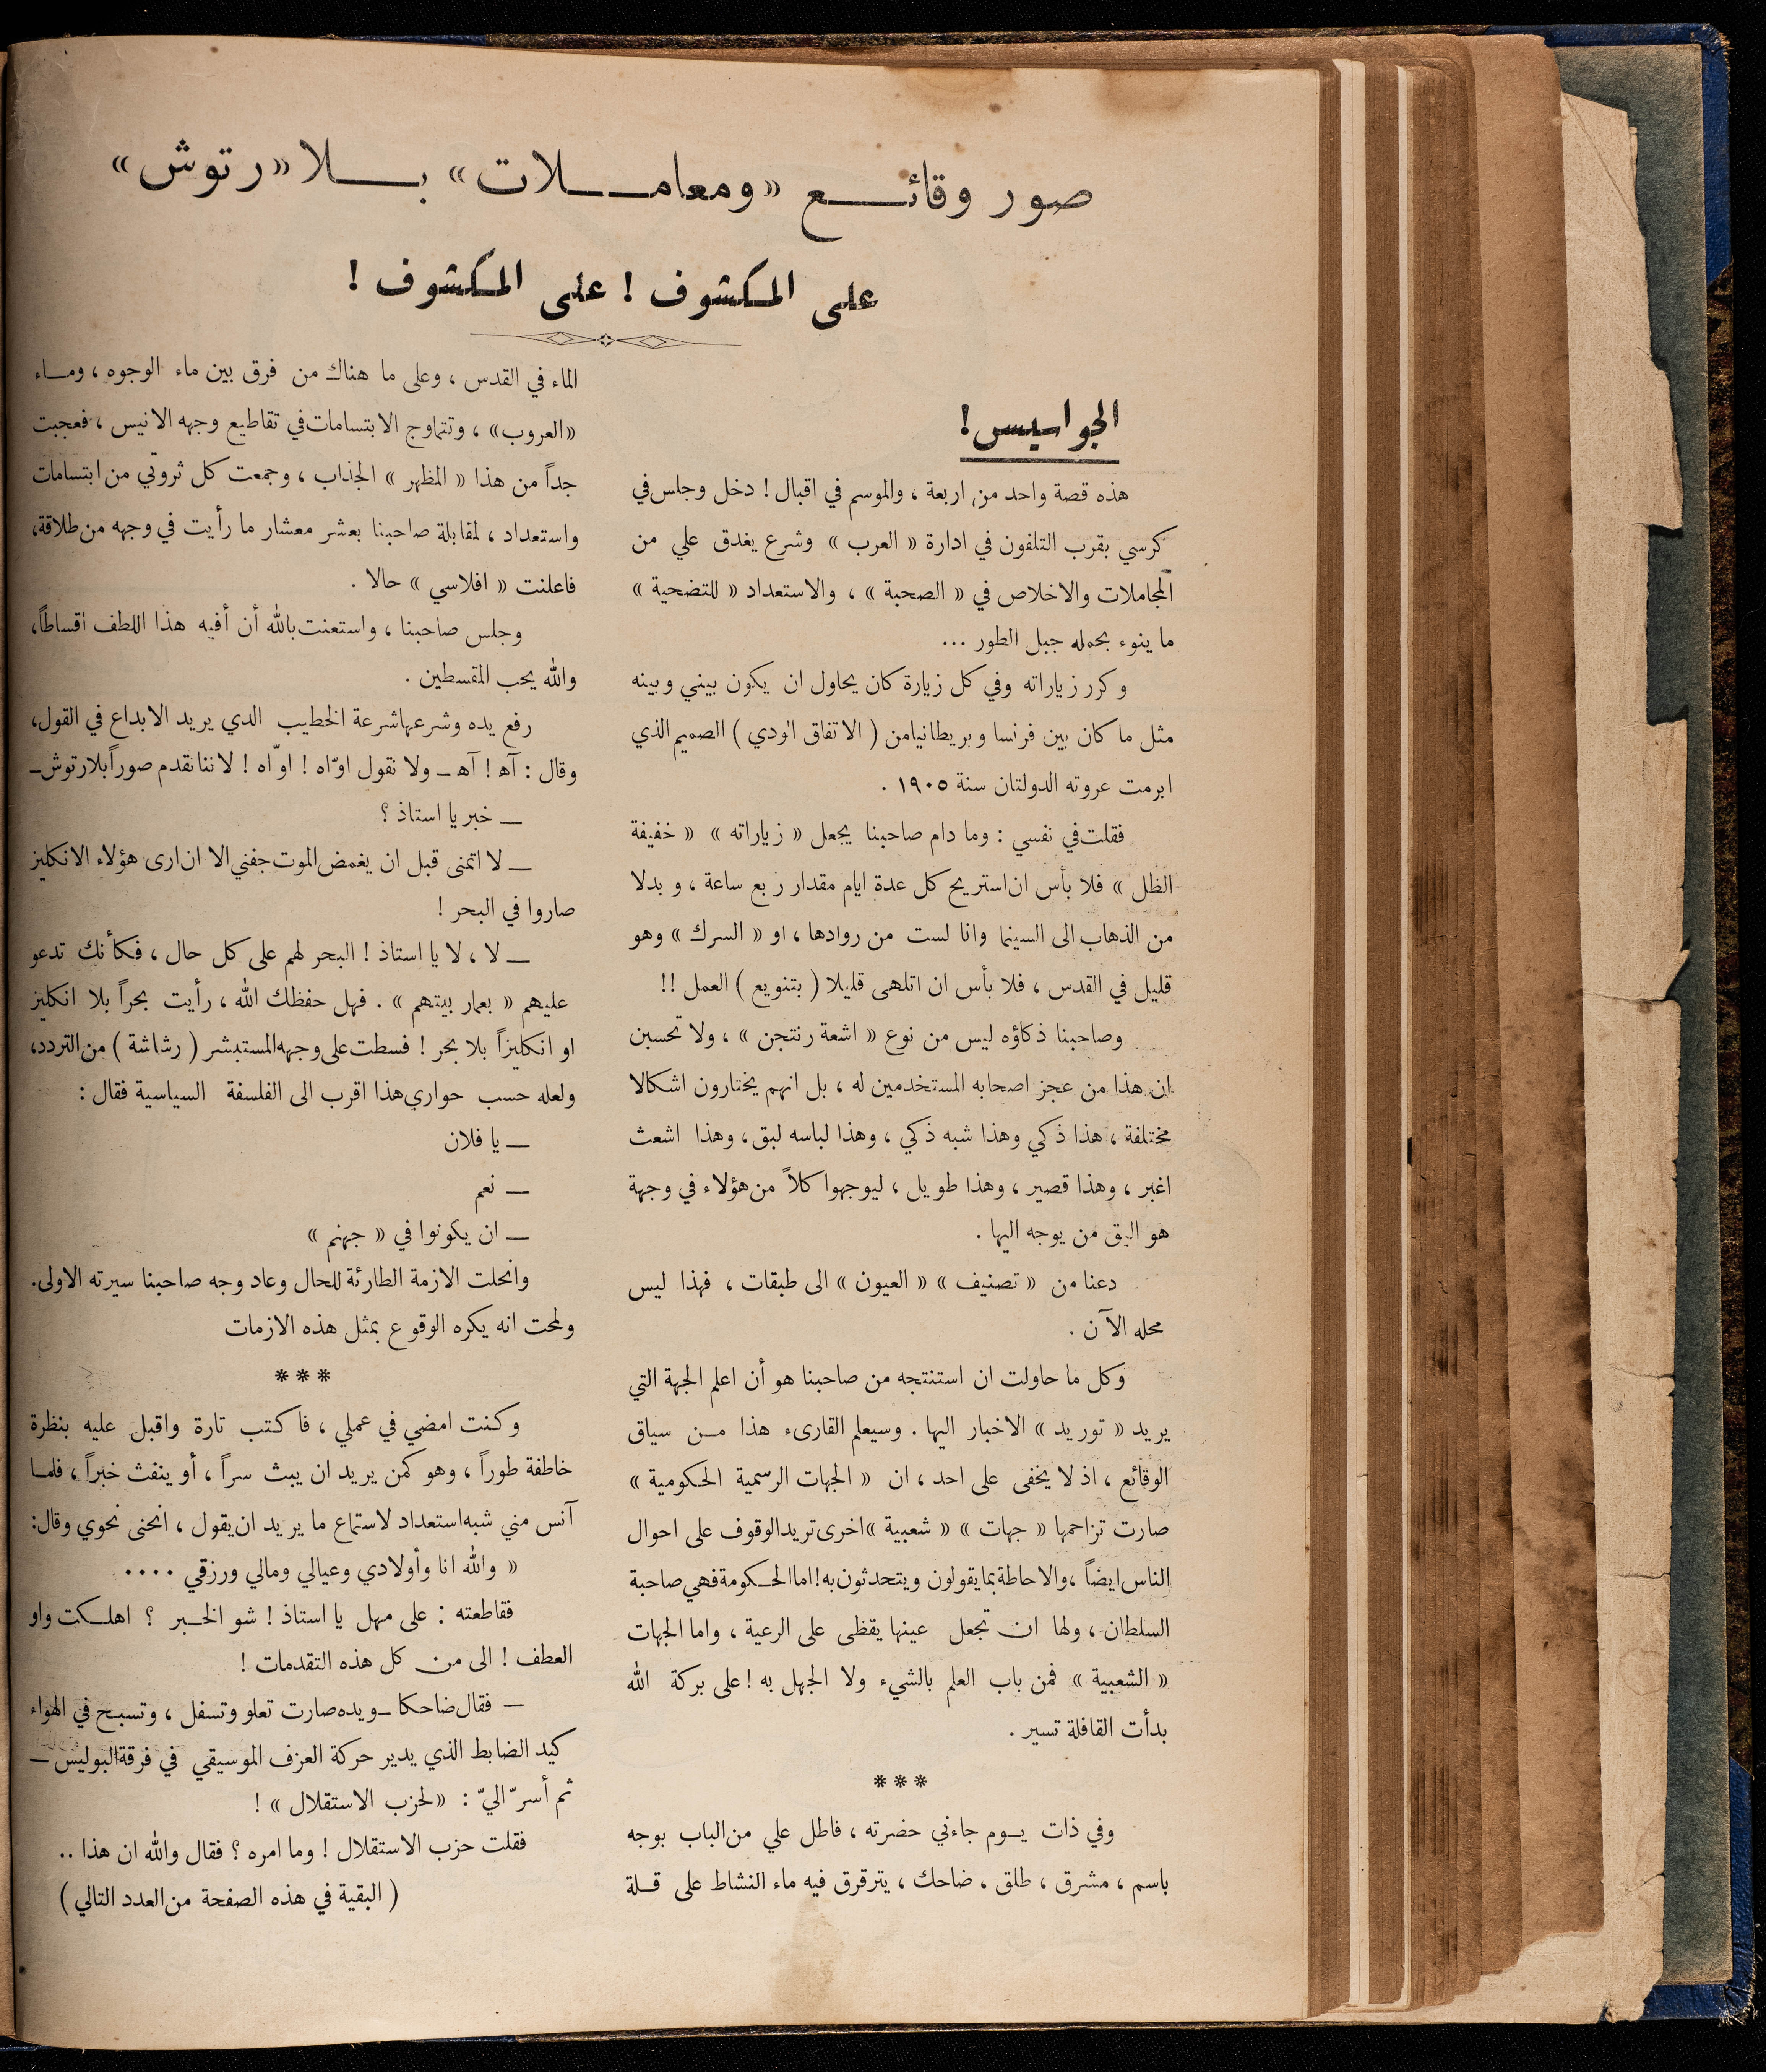 صور وقائع «ومعاملات» بلا «رتوش»
على المكشوف ! على المكشوف !
الجواسيس!
هذه قصة واحد من اربعة ، والموسم في اقبال ! دخل وجلس في
كرسي بقرب التلفون في ادارة « العرب » وشرع يغدق علي من
المجاملات والاخلاص في « الصحبة » ، والاستعداد « للتضحية »
ما ينوء بحمله جبل الطور ...
وكرر زياراته وفي كل زيارة كان يحاول ان يكون بيني وبينه
مثل ما كان بين فرنسا وبريطانيا من ( الاتفاق الودي ) الصميم الذي
ابرمت عروته الدولتان سنة ١٩٠٥ .
فقلت في نفسي : وما دام صاحبنا يجعل « زياراته » « خفيفة
الظل » فلا بأس ان استريح كل عدة ايام مقدار ربع ساعة ، و بدلا
من الذهاب الى السينما وانا لست من روادها ، او « السرك » وهو
قليل في القدس ، فلا بأس ان اتلهى قليلا ( بتنويع ) العمل !!
وصاحبنا ذكاؤه ليس من نوع « اشعة رنتجن » ، ولا تحسبن
ان هذا من عجز اصحابه المستخدمين له ، بل انهم يختارون اشكالا
مختلفة ، هذا ذكي وهذا شبه ذكي ، وهذا لباسه لبق ، وهذا اشعث
اغبر ، وهذا قصير ، وهذا طويل ، ليوجهوا كلاً من هؤلاء في وجهة
هو اليق من يوجه اليها .
دعنا من « تصنيف » « العيون » الى طبقات ، فهذا ليس
محله الآن .
وكل ما حاولت ان استنتجه من صاحبنا هو أن اعلم الجهة التي
يريد « توريد » الاخبار اليها . وسيعلم القارىء هذا من سياق
الوقائع ، اذ لا يخفى على احد ، ان « الجهات الرسمية الحكومية »
صارت تزاحمها « جهات » « شعبية » اخرى تريد الوقوف على احوال
الناس ايضاً ، والاحاطة بما يقولون ويتحدثون به ! اما الحكومة فهي صاحبة
السلطان ، ولها ان تجعل عينها يقظى على الرعية ، واما الجهات
« الشعبية » فمن باب العلم بالشيء ولا الجهل به ! على بركة الله
بدأت القافلة تسير .
***
وفي ذات يوم جاءني حضرته ، فاطل علي من الباب بوجه
باسم ، مشرق ، طلق ، ضاحك ، يترقرق فيه ماء النشاط على قلة
الماء في القدس ، وعلى ما هناك من فرق بين ماء الوجوه ، وماء
«العروب» ، وتتماوج الابتسامات في تقاطيع وجهه الانيس ، فعجبت
جداً من هذا « المظهر » الجذاب ، وجمعت كل ثروتي من ابتسامات
واستعداد ، لمقابلة صاحبنا بعشر معشار ما رأيت في وجهه من طلاقة،
فاعلنت « افلاسي » حالا .
وجلس صاحبنا ، واستعنت بالله أن أفيه هذا اللطف اقساطاً،
والله يحب المقسطين .
رفع يده وشرعها شرعة الخطيب الدي يريد الابداع في القول،
وقال : آه ! آه ــ ولا نقول اوّاه ! اوّاه ! لاننا نقدم صوراً بلا رتوش ــ
ــ خبر يا استاذ ؟
ــ لا اتمنى قبل ان يغمض الموت جفني الا ان ارى هؤلاء الانكليز
صاروا في البحر !
ــ لا ، لا يا استاذ ! البحر لهم على كل حال ، فكأنك تدعو
عليهم « بعمار بيتهم » . فهل حفظك الله ، رأيت بحراً بلا انكليز
او انكليزاً بلا بحر ! فسطت على وجهه المستبشر ( رشاشة ) من التردد،
ولعله حسب حواري هذا اقرب الى الفلسفة السياسية فقال :
ــ يا فلان
ــ نعم
ــ ان يكونوا في « جهنم »
وانحلت الازمة الطارئة للحال وعاد وجه صاحبنا سيرته الاولى.
ولمحت انه يكره الوقوع بمثل هذه الازمات
***
وكنت امضي في عملي ، فاكتب تارة واقبل عليه بنظرة
خاطفة طوراً ، وهو كمن يريد ان يبث سراً ، أو ينفث خبراً ، فلما
آنس مني شبه استعداد لاستماع ما يريد ان يقول ، انحنى نحوي وقال:
« والله انا وأولادي وعيالي ومالي ورزقي ....
فقاطعته : على مهل يا استاذ ! شو الخبر ؟ اهلكت واو
العطف ! الى من كل هذه التقدمات !
— فقال ضاحكا ــ ويده صارت تعلو وتسفل ، وتسبح في الهواء
كيد الضابط الذي يدير حركة العزف الموسيقي في فرقة البوليس ــ
ثم أسرّ اليّ : «لحزب الاستقلال » !
فقلت حزب الاستقلال ! وما امره ؟ فقال والله ان هذا ..
( البقية في هذه الصفحة من العدد التالي )